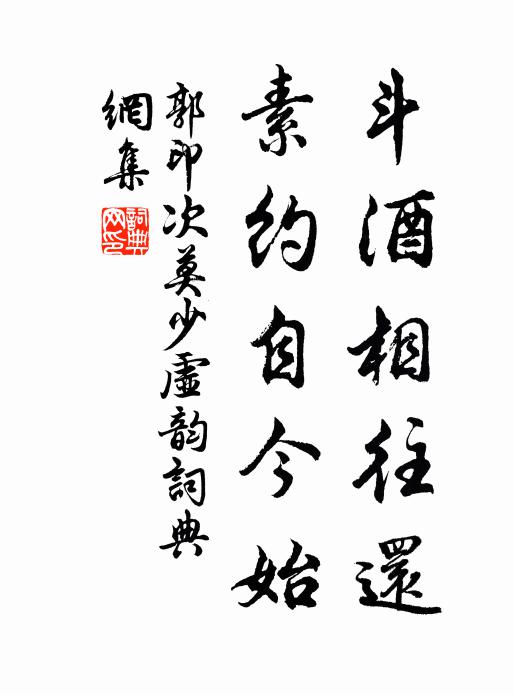 斗酒相往還
素約自今始
郭印次莫少虛韵詞典
網集
詞典網印